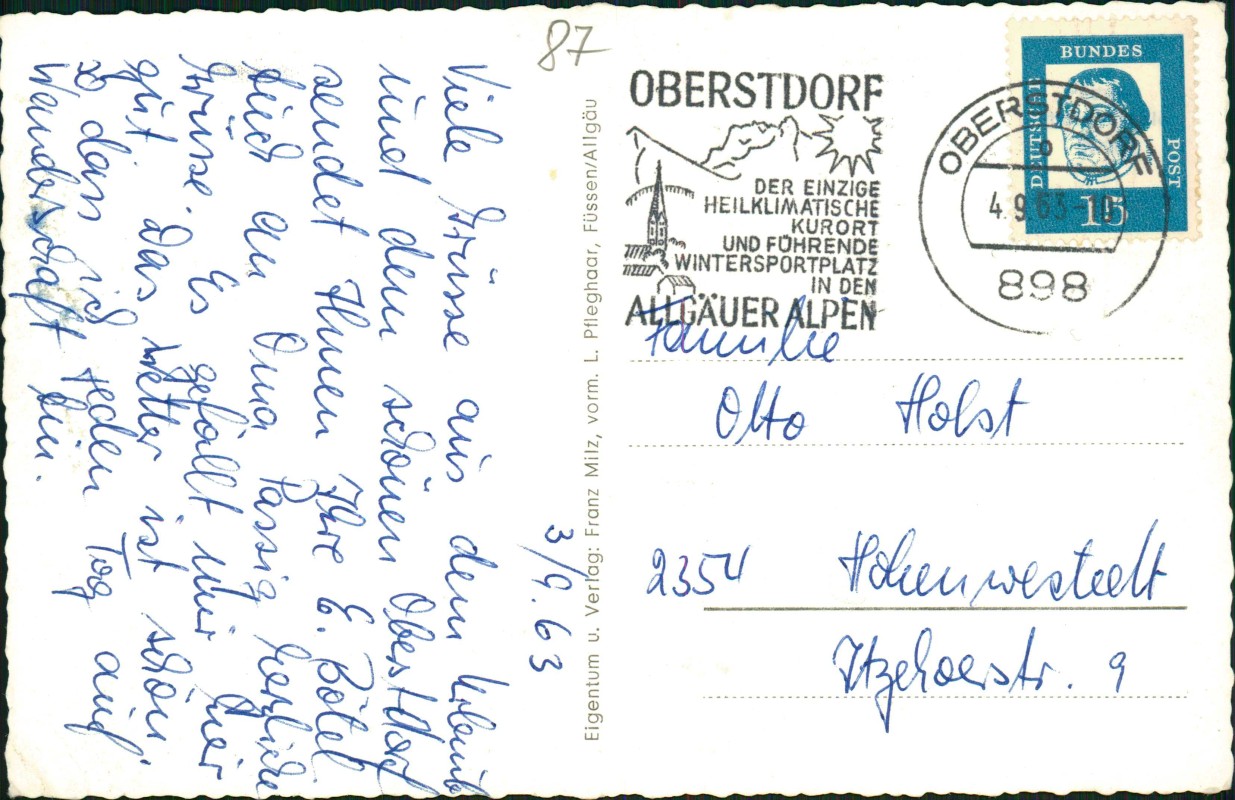 87
3/9. 63
Viele Grüsse aus dem Urlaub
und dem schönen Oberstdorf
sendet Ihnen Ihre E. Bötel
Sind an Oma Passig herzliche
Grüsse. Es gefällt mir hier
gut. Das Wetter ist schön
so dass ich jeden Tag auf
Wanderschaft bin.
Eigentum u. Verlag: Franz Milz, vorm. L. Pfleghaar, Füssen/Allgäu
OBERSTDORF
DER EINZIGE
HEILKLIMATISCHE
KURORT
UND FÜHRENDE
WINTERSPORTPLATZ
IN DEN
ALLGÄUER ALPEN
OBERSTDORF
4.9.63-10
898
DEUTSCHE
BUNDES
POST
15
Familie
Otto Holst
2354 Hohenwestedt
Itzehoerstr. 9